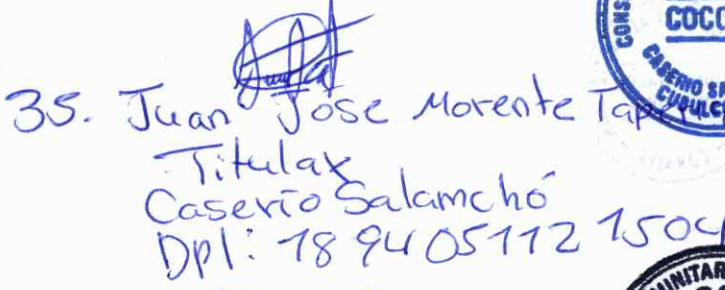 CONS
COCO
CASERIO SA
CUBULC
35. Juan José Morente
Titular
Caserío Salamchó
DPI: 18 94 05112 1504
UNITAR